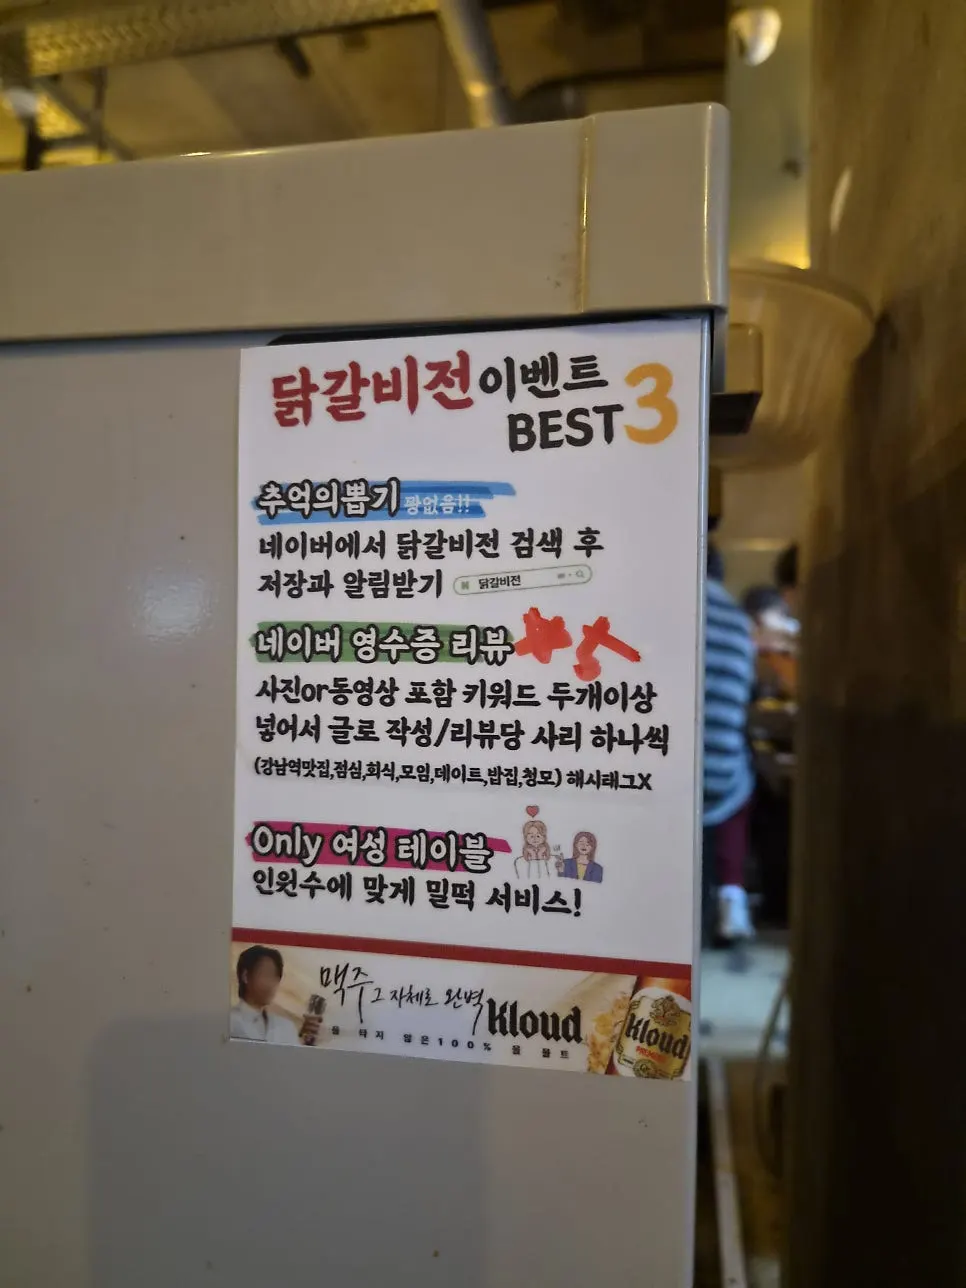 닭갈비전이벤트
BEST 3
추억의뽑기 꽝없음!!
네이버에서 닭갈비전 검색 후
저장과 알림받기 닭갈비전
네이버 영수증 리뷰
사진or동영상 포함 키워드 두개이상
넣어서 글로 작성/리뷰당 사리 하나씩
(강남역맛집,점심,회식,모임,데이트,밥집,청모) 해시태그X
Only 여성 테이블
인원수에 맞게 밀떡 서비스!
맥주 그 자체로 완벽 Kloud
물 타지 않은 100% 올 몰트
Kloud